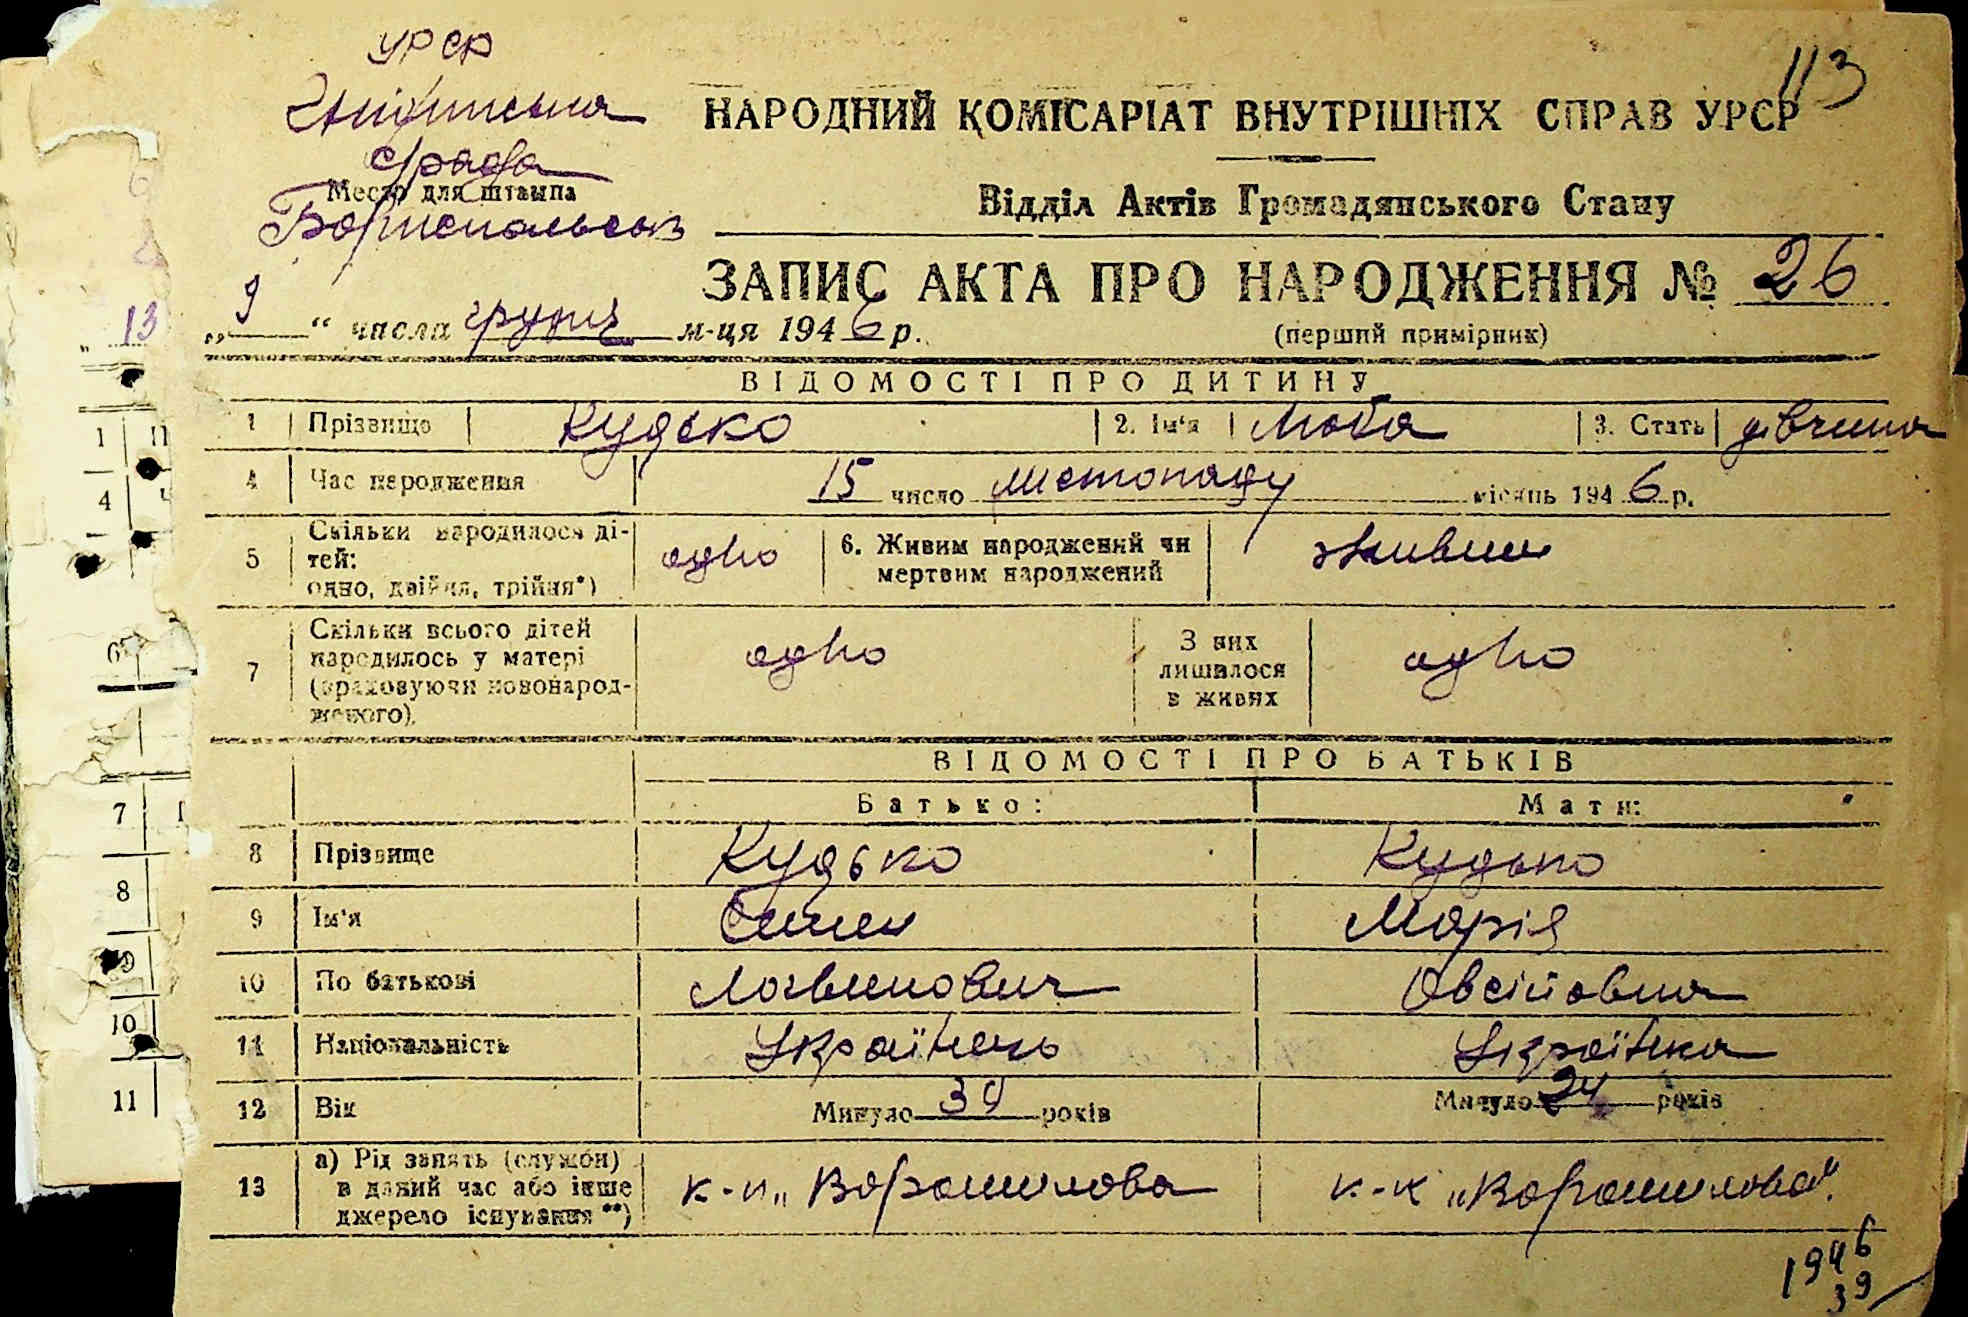 113
УРСР
с/рада
Место для штампа
Бориспольськ
НАРОДНИЙ КОМІСАРІАТ ВНУТРІШНІХ СПРАВ УРСР
Відділ Актів Громадянського Стану
ЗАПИС АКТА ПРО НАРОДЖЕННЯ № 26
„9“ числа грудня м-ця 1946 р.
(перший примірник)
ВІДОМОСТІ ПРО ДИТИНУ
1 Прізвище Кудько 2. Ім'я Люба 3. Стать дівчина
4 Час народження 15 число листопаду місяць 1946 р.
5 Скільки народилося дітей: одно, двійня, трійня*) одно 6. Живим народжений чи мертвим народжений живим
7 Скільки всього дітей народилось у матері (враховуючи новонародженого). одно З них лишилося в живих одно
ВІДОМОСТІ ПРО БАТЬКІВ
Батько: Мати:
8 Прізвище Кудько Кудько
9 Ім'я Семен Марія
10 По батькові Логвинович Овсіївна
11 Національність Українець Українка
12 Вік Минуло 39 років Минуло 24 років
13 а) Рід занять (служби) в даний час або інше джерело існування **) к-п „Ворошилова к-к „Ворошилова".
1946
39
13
1
4
6
7
8
9
10
11